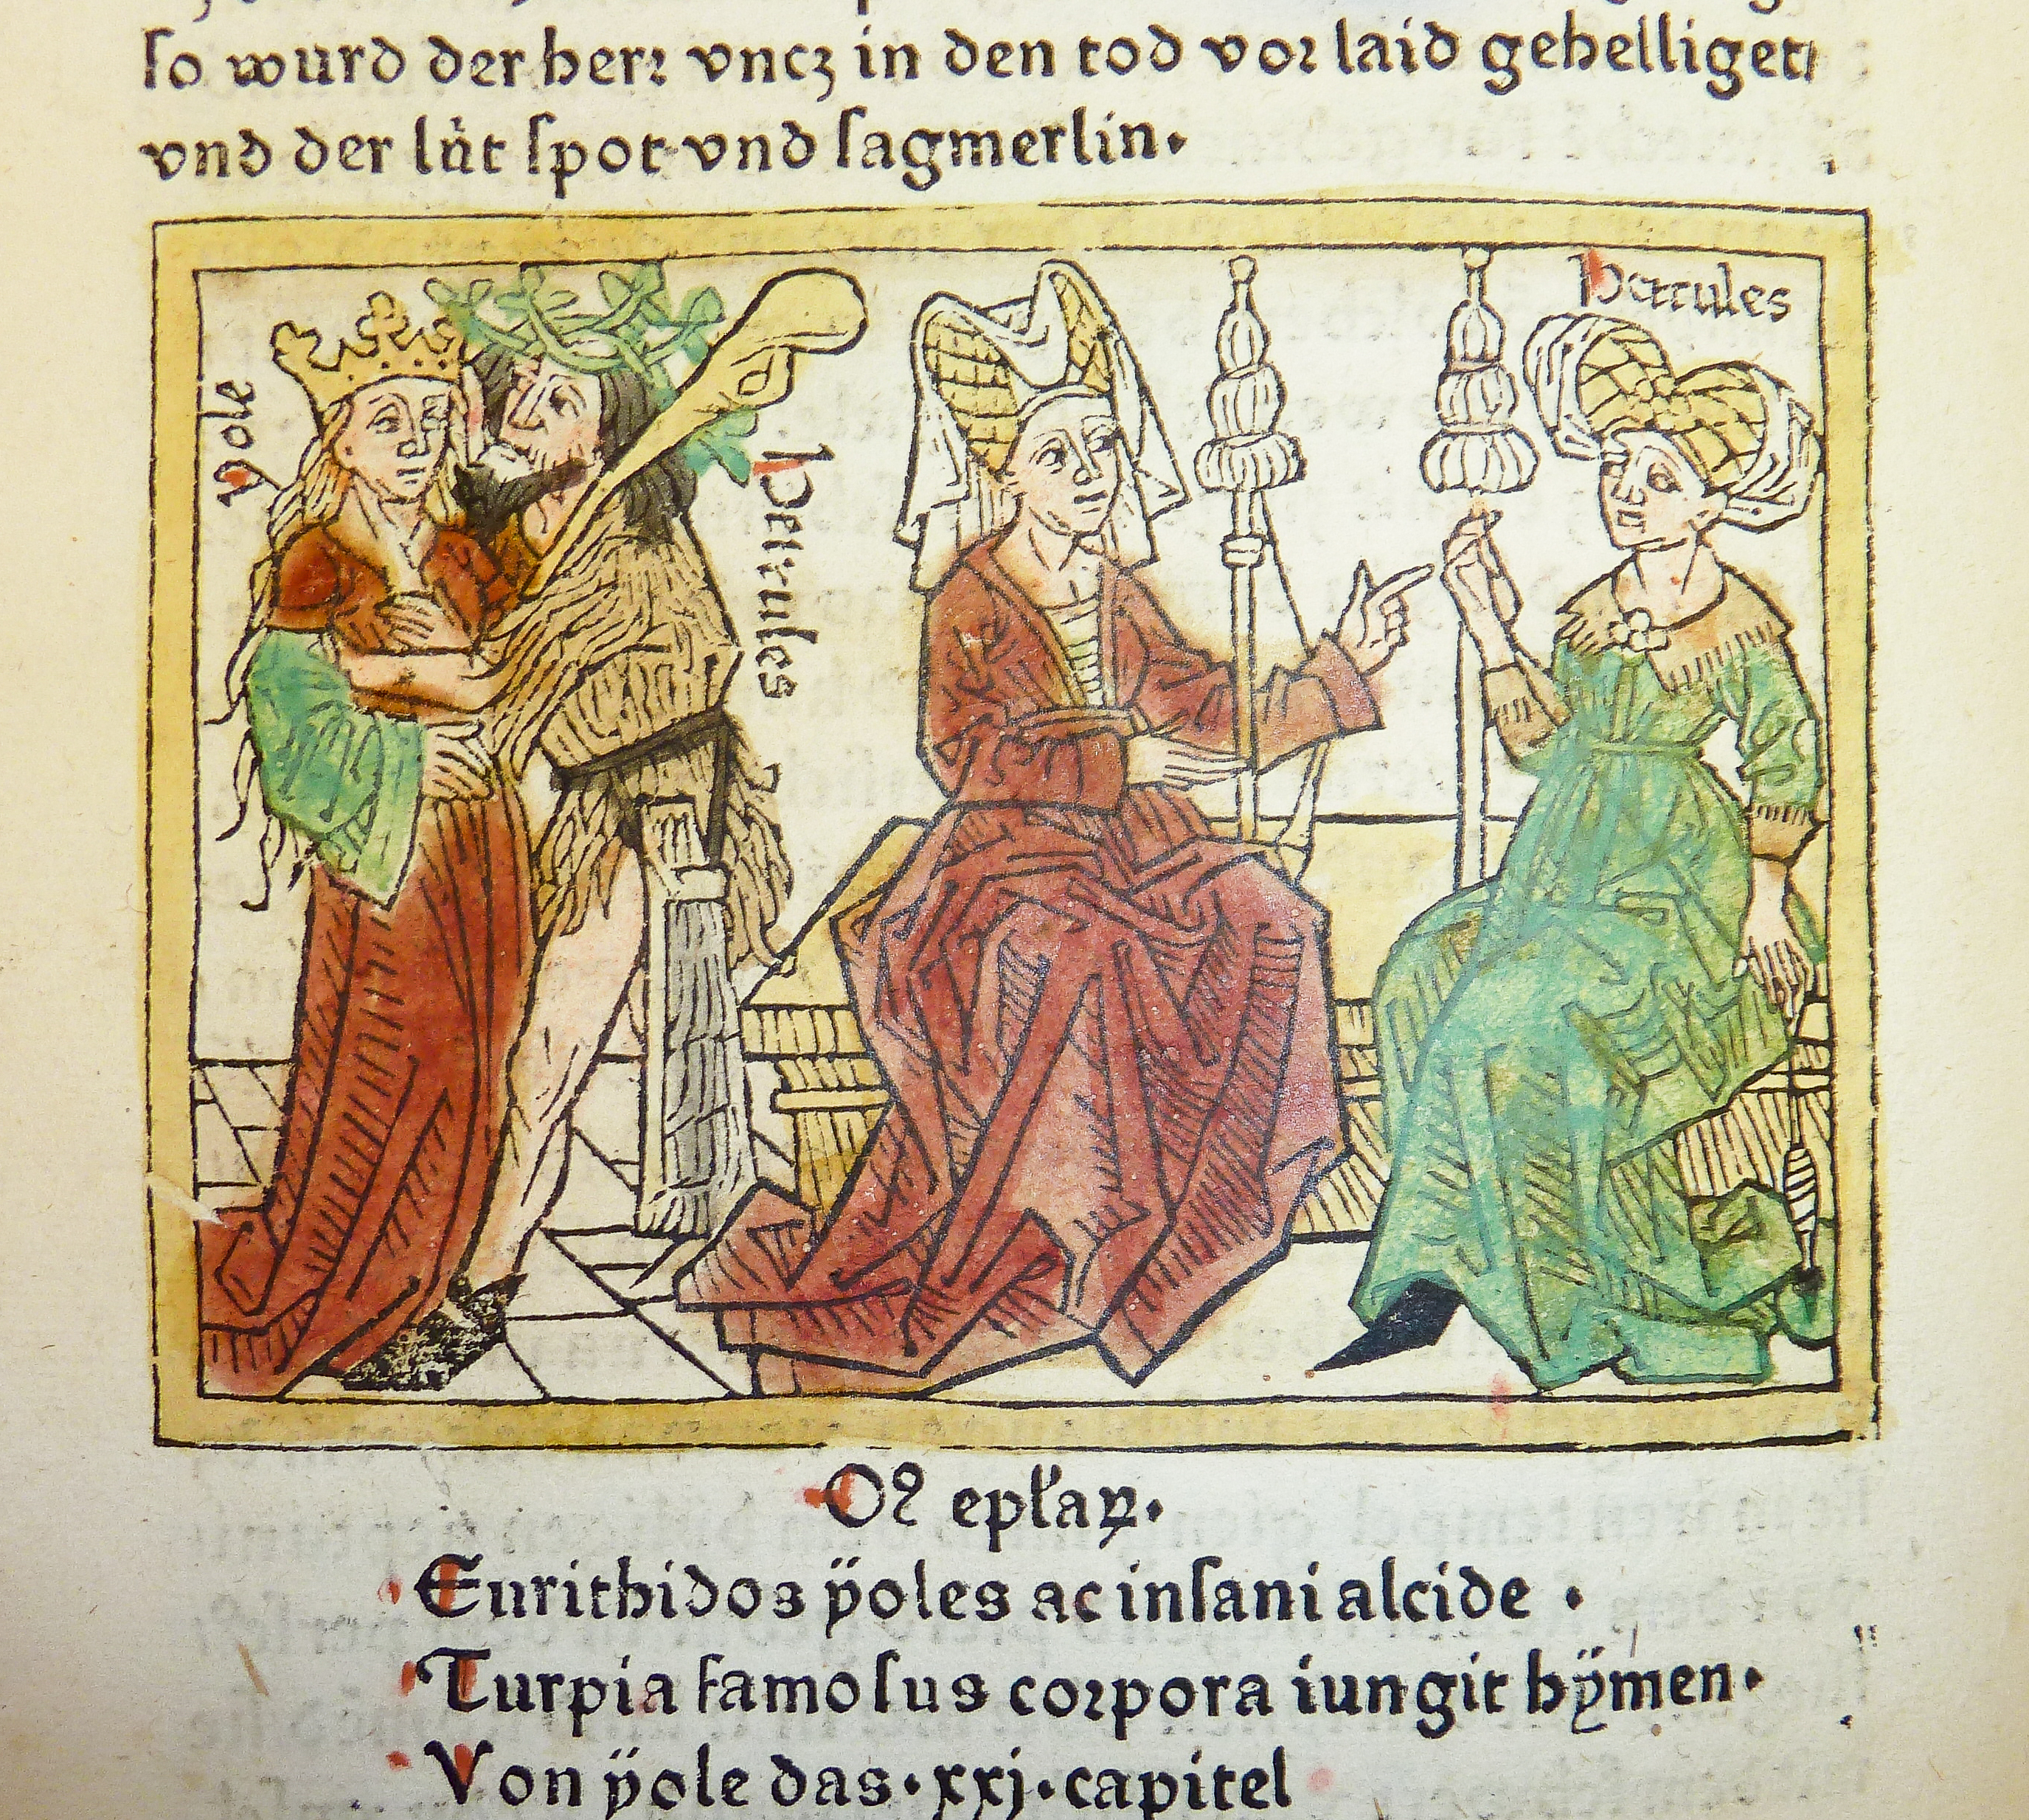 so wurd der herr vncz in den tod vor laid gehelliget/
vnd der lüt spot vnd sagmerlin.
yole
Hercules
Hercules
Eurithidos ÿoles ac insani alcide .
Turpia famosus corpora iungit hÿmen.
Von ÿole das .xxj. capitel